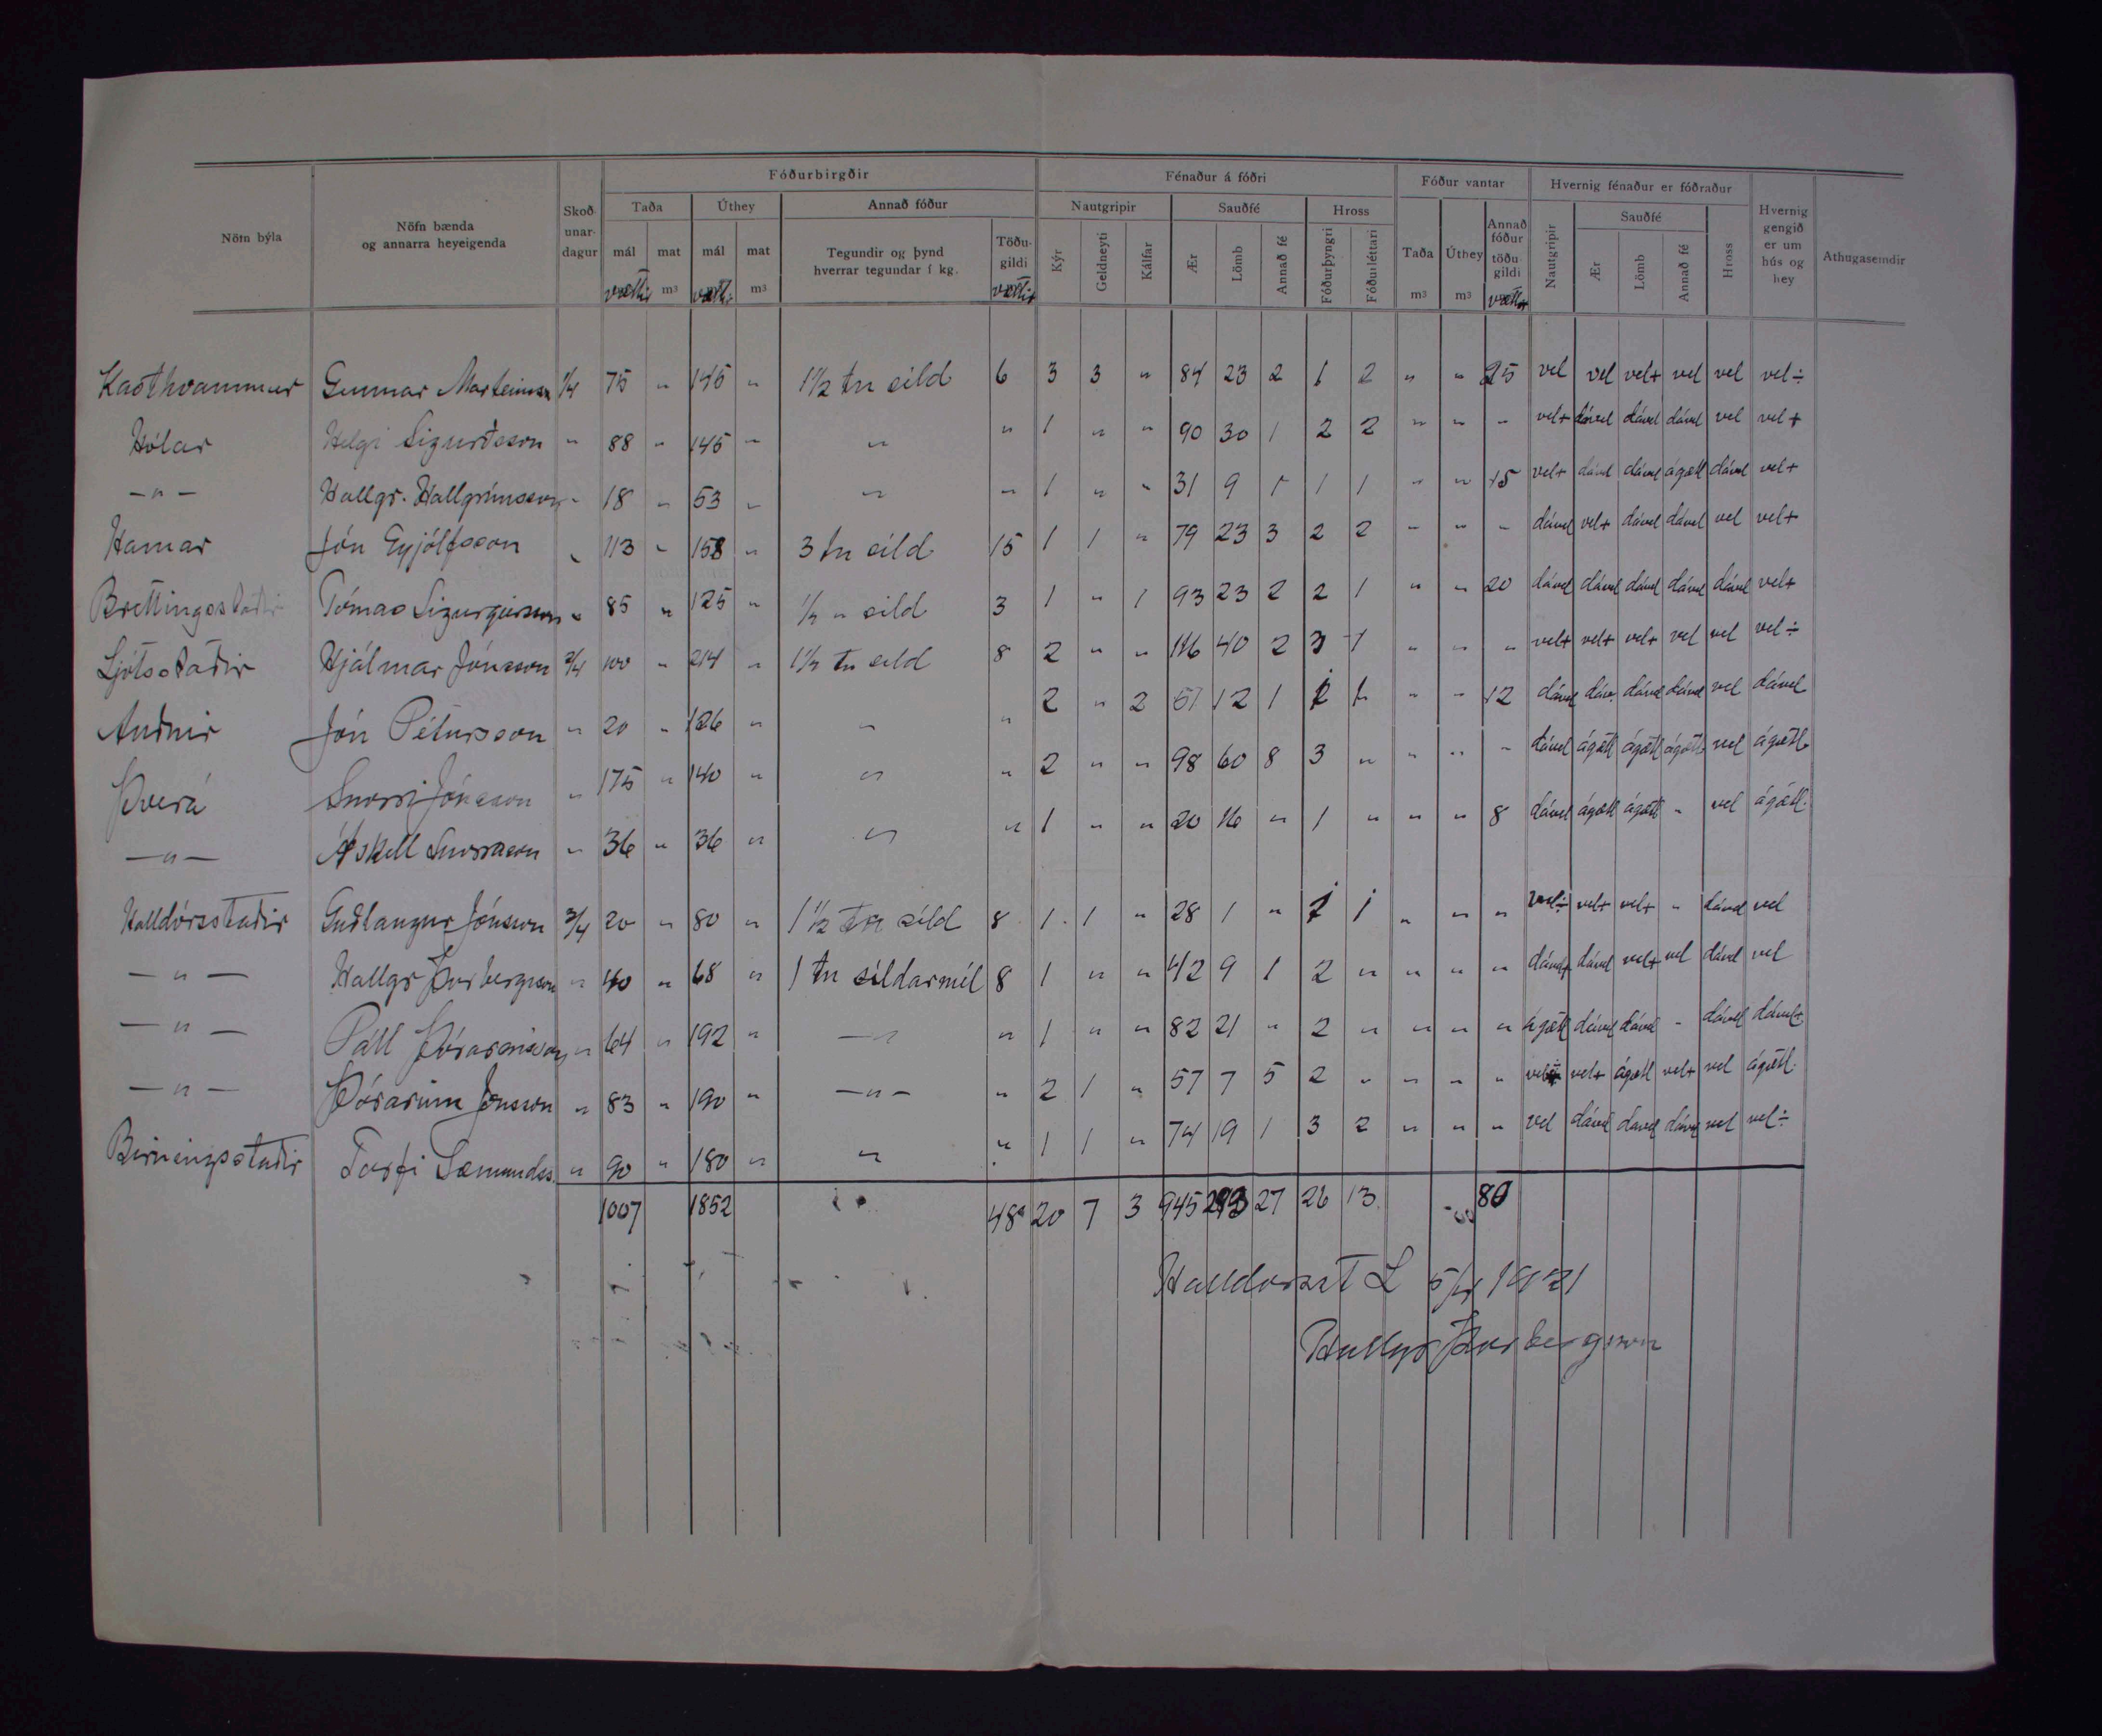 Fóðurbirgðir Fénaður á fóðri Fóður vantar Hvernig fénaður er fóðraður
Nöfn býla Nöfn bænda og annarra heyeigenda Skoðunardagur Taða Úthey Annað fóður Nautgripir Sauðfé Hross Taða Úthey Annað fóður töðugildi Nautgripir Sauðfé Hross Hvernig gengið er um hús og hey Athugasemdir
mál mat mál mat Tegundir og þynd hverrar tegundar í kg. Töðugildi Kýr Geldneyti Kálfar Ær Lömb Annað fé Fóðurþyngri Fóðurléttari Ær Lömb Annað fé
vættir m³ vættir m³ vættir m³ m³ vættir
Kasthvammur Gunnar Marteinsson 1/4 75 " 145 " 1½ tn síld 6 3 3 " 84 23 2 1 2 " " 25 vel vel vel+ vel vel vel÷
Hólar Helgi Sigurðsson " 88 " 145 " " " 1 " " 90 30 1 2 2 " " " vel+ dável dável dável vel vel+
-"- Hallgr. Hallgrímsson " 18 " 53 " " " 1 " " 31 9 1 1 1 " " 15 vel+ dável dável ágætt dável vel+
Hamar Jón Eyjólfsson " 113 " 158 " 3 tn síld 15 1 1 " 79 23 3 2 2 " " " dável vel+ dável dável vel vel+
Brettingsstaðir Tómas Sigurgeirsson " 85 " 125 " ½ " síld 3 1 " 1 93 23 2 2 1 " " 20 dável dável dável dável dável vel+
Ljótsstaðir Hjálmar Jónsson 2/4 100 " 214 " 1½ tn síld 8 2 " " 116 40 2 3 1 " " " vel+ vel+ vel+ vel vel vel÷
Auðnir Jón Pétursson " 20 " 126 " " " 2 " 2 51 12 1 1 1 " " 12 dável dáv. dável dável vel dável
Þverá Snorri Jónsson " 175 " 140 " " " 2 " " 98 60 8 3 " " " " dável ágætt ágætt ágætt vel ágætt
-"- Áskell Snorrason " 36 " 36 " " " 1 " " 20 16 " 1 " " " 8 dável ágætt ágætt " vel ágætt.
Halldórsstaðir Guðlaugur Jónsson 3/4 20 " 80 " 1½ tn síld 8 1 1 " 28 1 " 1 1 " " " vel÷ vel+ vel+ " dável vel
-"- Hallgr Þorbergsson " 40 " 68 " 1 tn síldarmél 8 1 " " 42 9 1 2 " " " " dável+ dável vel+ vel dável vel
-"- Páll Þórarinsson " 64 " 192 " -"- " 1 " " 82 21 " 2 " " " " ágætt dável dável " dável dável+
-"- Þórarinn Jónsson " 83 " 190 " -"- " 2 1 " 57 7 5 2 " " " " vel÷ vel+ ágætt vel+ vel ágætt.
Birningsstaðir Torfi Sæmundss. " 90 " 180 " " " 1 1 " 74 19 1 3 2 " " " vel dável dável dável vel vel÷
1007 1852 48 20 7 3 945 293 27 26 13 80
Halldórsst L 5/4 1921
Hallgr Þorbergsson